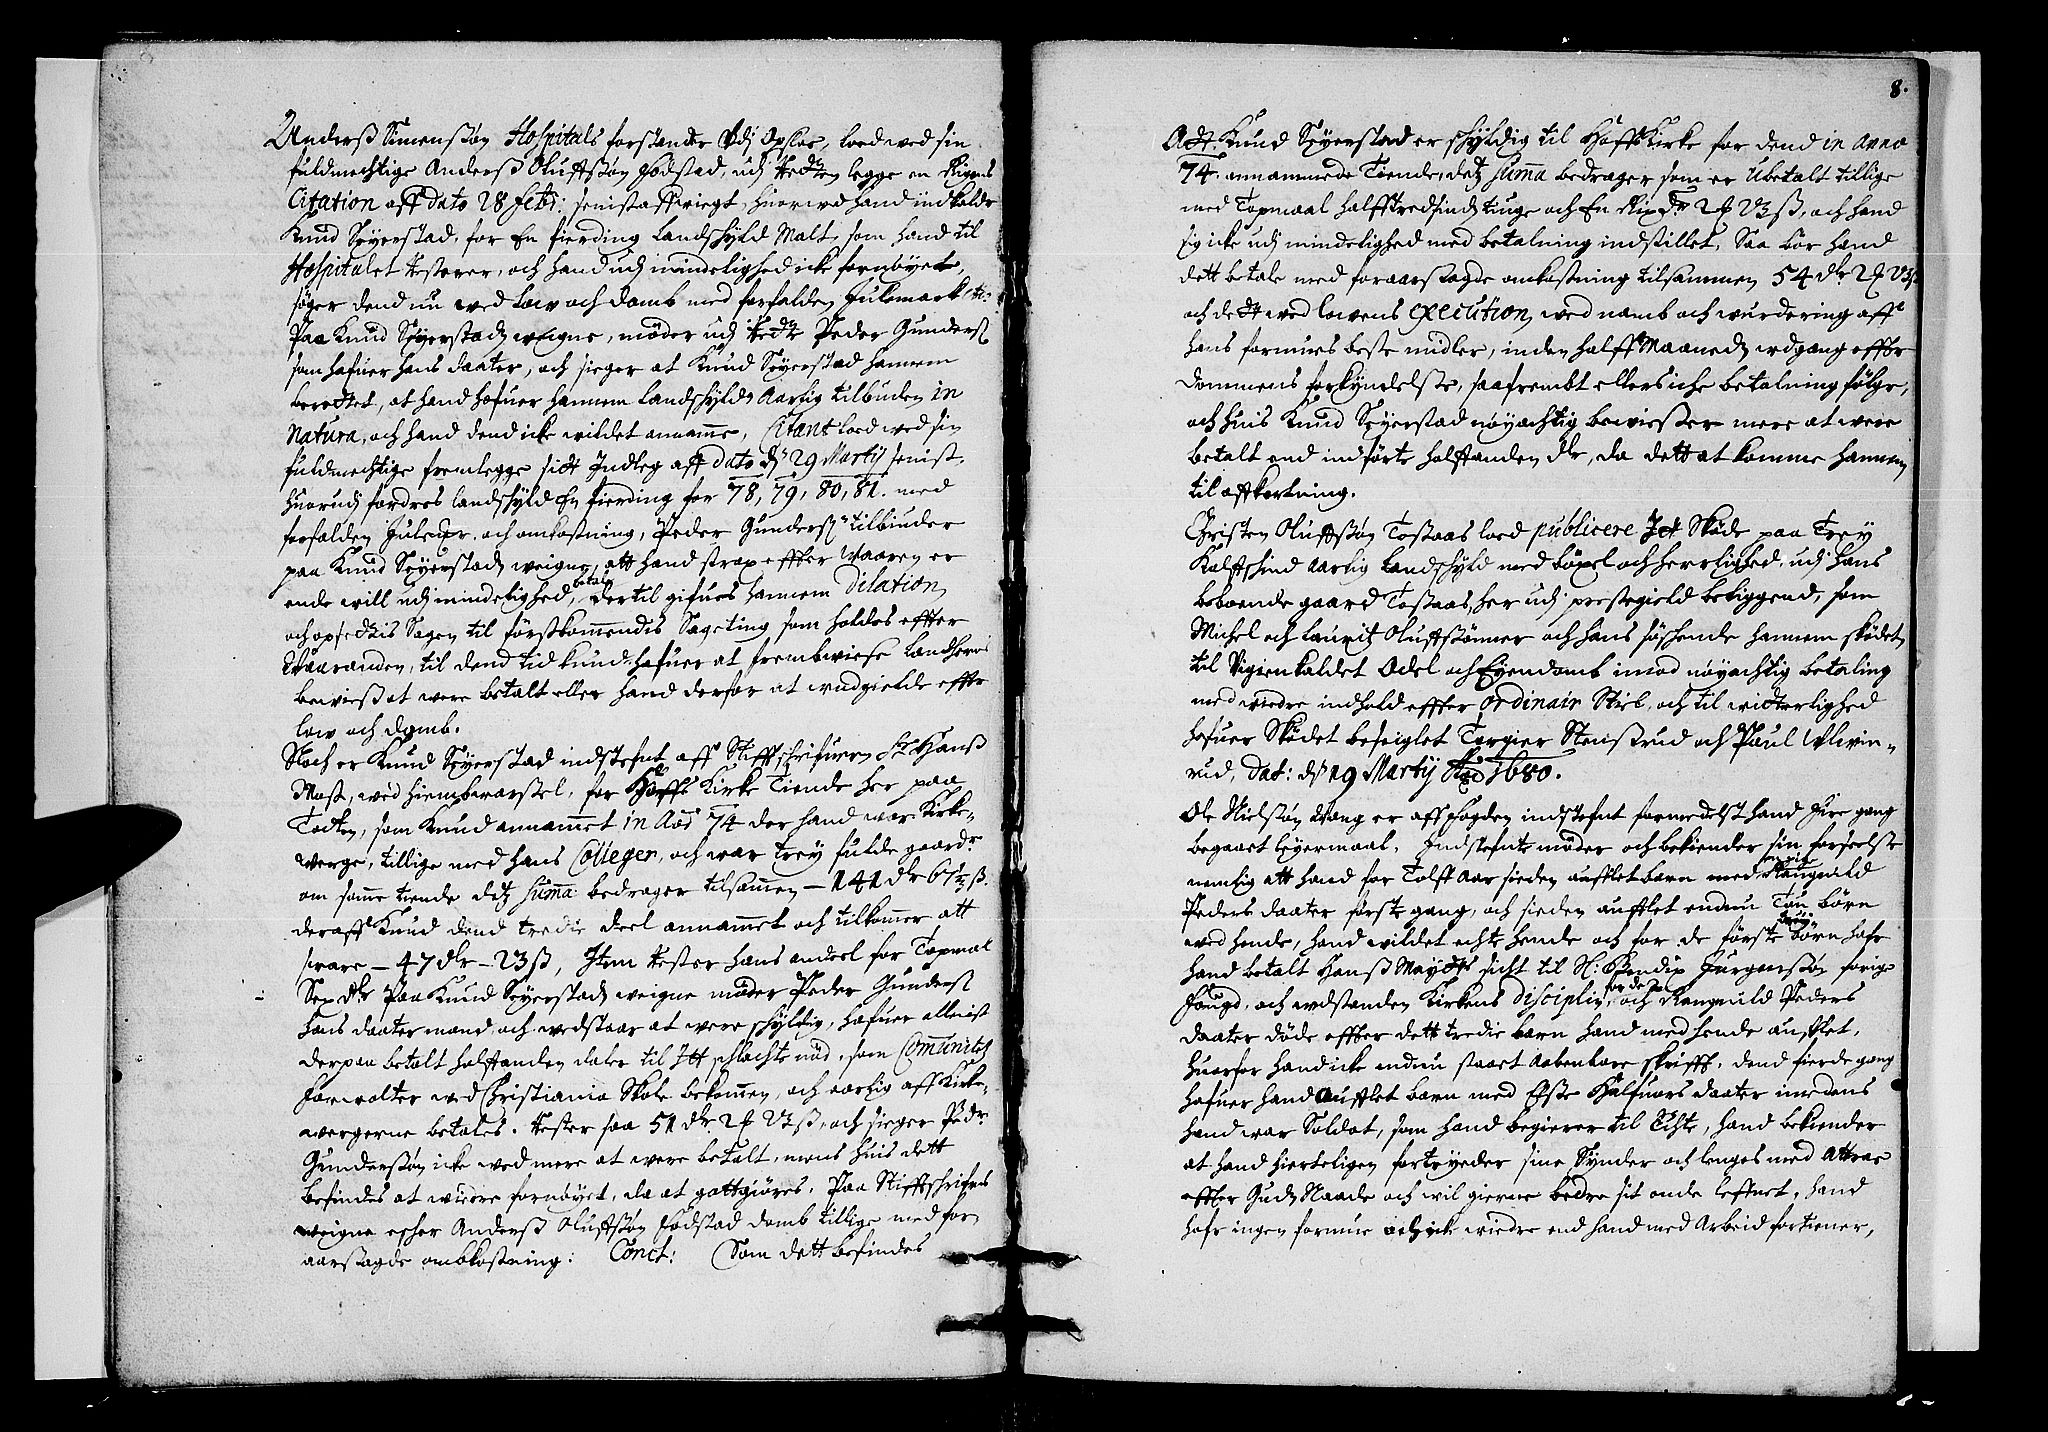 Anderß Simensøn Hospitals forstander Udj Opsloe, loed wed sin
fuldmechtige Anderß Oluffsøn Fodstad, udj Retten legge en Rigens
Citation aff dato 28 Feb: senist affwiegt, huorwed hand indkalde
Knud Seyerstad, for En fierding Landschyld Malt, som hand til
Hospitalet Rester, och hand udj mindelighed icke fornøyet,
søger dend nu wed low och domb med forfalden Julemarck etc:
Paa Knud Seyerstadz weigne, møder udj Rette Peder Gunderß:
som hafuer hans daater, och sieger at Knud Seyerstad hannem
beretter, at hand hafuer hannem Landschyld Aarlig tilbuden in
Natura, och hand dend icke wildet annamme, Citant loed wed sin
fuldmechtige fremlegge sidt Indleg aff dato d: 29 Martij senist,
huorudj fordres landschyld En fierding for 78, 79, 80, 81. med
forfalden Juleur och omkostning, Peder Gunderß: tilbiuder
paa Knud Seyerstadz weigne, att hand strax effter Waaren er
ende will udj mindelighed, betale dertil gifues hannem Dilation
och opsettis Sagen til førstkommendis Sageting som holdes effter
Waaranden, til dend tid Knud hafuer at frembwiese Landherre
bewieß at were betalt eller hand derfor at undgielde effter
low och domb.
Noch er Knud Seyerstad indstefnt aff Stifftschrifueren Sr Hanß
Must, wed hiembwarsel, for Hoffs Kirke Tiende her paa
Todten, som Knud annammet in Ano 74 der hand war Kirke-
werge, tillige med hans Colleger, och war trey fulde gaarder
om samme tiende detz Suma bedrager tilsammen - 141 dlr 67½ ß.
deraff Knud dend tredie deel annammet och tilkommer att
suare - 47 dlr - 23 ß, Item Rester hans andeel for Tapmal
Sex dlr Paa Knud Seyerstadz weigne møder Peder Gunderß:
hans daatermand, och wedstaar at were schyldig, hafuer allenist
derpaa betalt halffanden daler til Itt schlachte nød, som Comunitetz
Forwalter wed Christiania Skole bekommen, och aarlig aff Kirke-
wergerne betales. Rester saa 51 dlr 2 ₰ 23 ß, och sieger Pedr:
Gundersøn icke wed mere at were betalt, mens huis dett
befindes at wiere fornøyet, da at gottgiøres, Paa Stifftschrifuerens
weigne escher Anderß Oluffsøn Fodstad domb tillige med for-
aarsagde ombkostning: Conct: Som dett befindes
8.
Att Knud Seyerstad er schyldig til Hoffs Kirke for dend in Anno
74. annammede Tiende, detz Suma bedrager som er Ubetalt tillige
med Tapmaal halfftredsindztiuge och En Rix dlr 2 ₰ 23 ß, och hand
sig icke udj mindelighed med betalning indstillet, Saa bør hand
dett betale med foraarsagde omkostning tilsammen 54 dlr 2 ₰ 23 ß
och dett wed lowens execution wed namb och wurdering aff
hans formues beste midler, inden halff Maanedz udgang effter
Dommens forkyndelse, saafrembt ellers iche betalning følger,
och huis Knud Seyerstad nøyachtig bewießer mere at were
betalt end indførte halffanden dlr, da dett at komme hannem
til affkortning.
Christen Oluffsøn Tosaas loed publicere Itt Skøde paa Trey
Kalffschind aarlig Landschyld med bøxel och herrlighed, udj hans
beboende gaard Tosaas, her udj prestegield beliggend, som
Michel och Laurit Oluffsønner och hans søschende hannem skødet
til Uigienkaldet Odel och Eyendomb imod nøyachtig betaling
med wiedre indhold effter ordinair Stiel, och til witterlighed
hafuer Skødet beseiglet Torgier Stensrud och Paul Ulwin-
rud, Dat: d: 19 Martij Ao 1680.
Ole Nielsøn Wang er aff fogden indstefnt formedelst hand fire gang
begaaet leyermaal. Indstefnte møder och bekiender sin forseelse
nemlig att hand for Tolff Aar sieden aufflet barn med Rangnild
Peders daater første gang, och sieden aufflet endnu Tou børn
wed hende, hand wildet echte hende och for de første Tou børn hafr
hand betalt Hanß Mayts sicht til Sl: Bendix Jürgensøn forige
Fougd, och udstanden Kirkens disciplin, for de 2 och Rangnild Peders
daater døde effter dett tredie barn hand med hende aufflet,
huorfor hand icke endnu staaet Aabenbare skriffte, dend fierde gang
hafuer hand Aufflet barn med Else Halfuors daater imedens
hand war Soldat, som hand begierer til Echte, hand bekiender
at hand hierteligen fortryeder sine Synder och lenges med Attraae
effter Gudz Naade och wil gierne bedre sit onde leffnet, hand
hafr ingen formue och icke wiedre end hand med Arbeid fortiener,